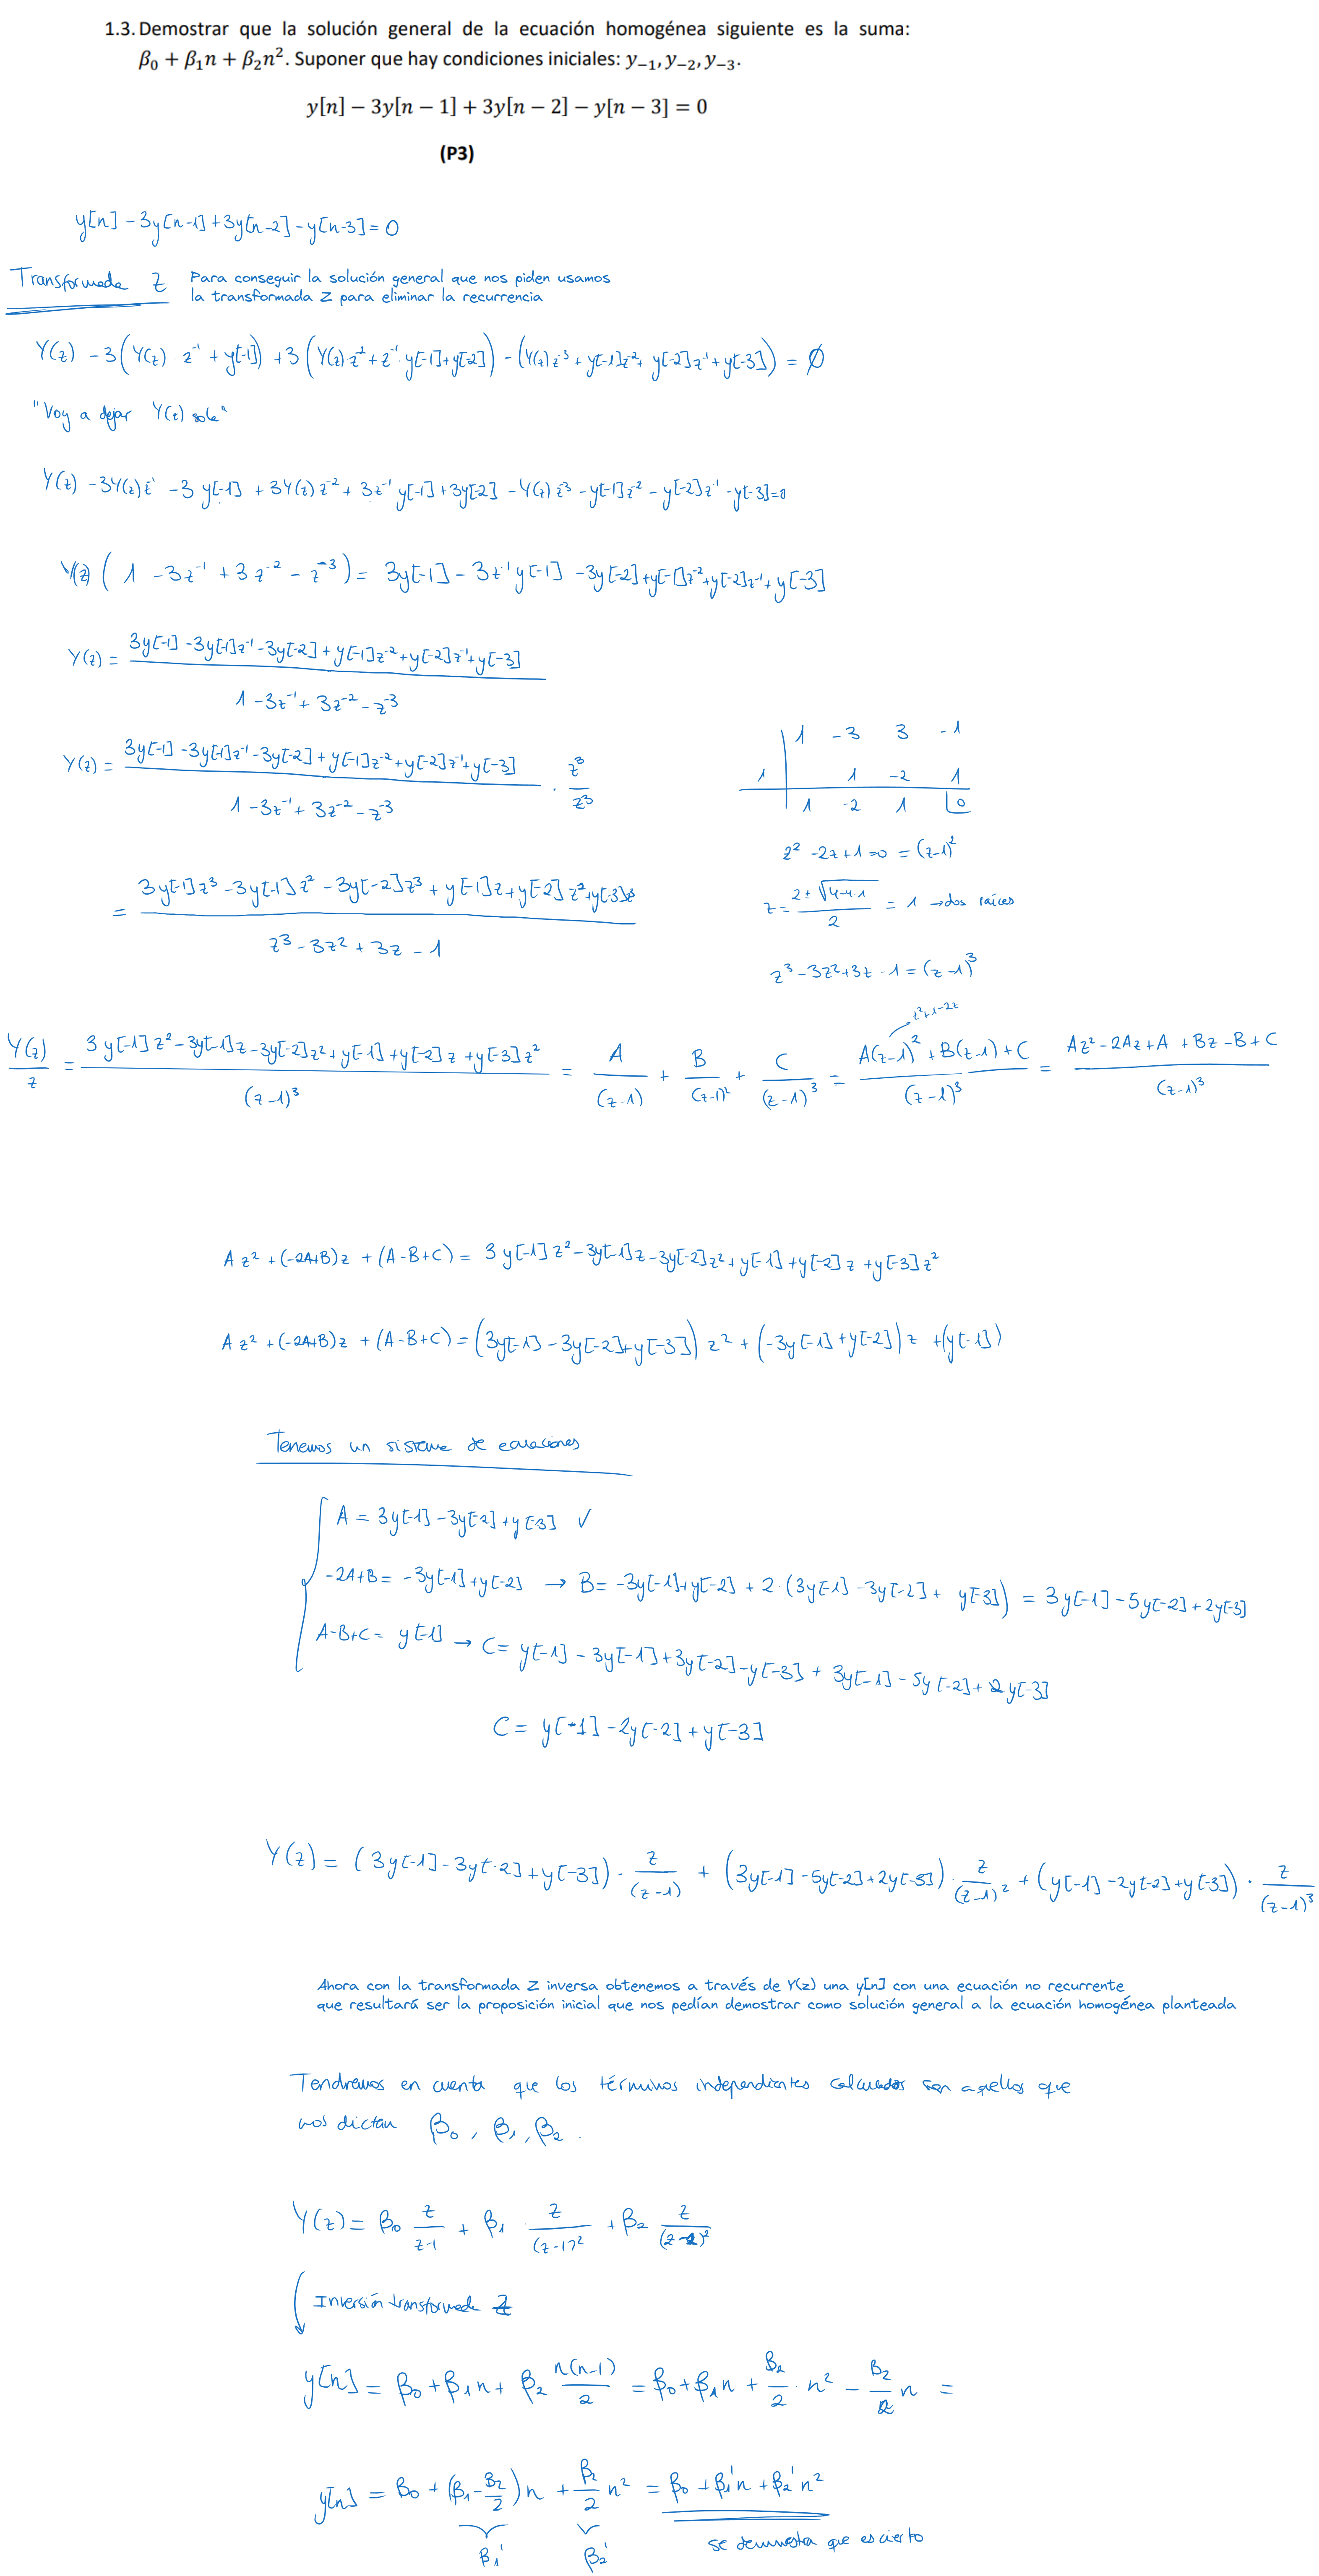 1.3. Demostrar que la solución general de la ecuación homogénea siguiente es la suma:
β₀ + β₁n + β₂n². Suponer que hay condiciones iniciales: y₋₁, y₋₂, y₋₃.
y[n] − 3y[n − 1] + 3y[n − 2] − y[n − 3] = 0
(P3)
y[n] - 3y[n-1] + 3y[n-2] - y[n-3] = 0
Transformada Z Para conseguir la solución general que nos piden usamos
la transformada Z para eliminar la recurrencia
Y(z) - 3(Y(z) · z⁻¹ + y[-1]) + 3(Y(z) z⁻² + z⁻¹ · y[-1] + y[-2]) - (Y(z) z⁻³ + y[-1]z⁻² + y[-2]z⁻¹ + y[-3]) = Ø
"Voy a dejar Y(z) sola"
Y(z) - 3Y(z) z⁻¹ - 3 y[-1] + 3Y(z) z⁻² + 3z⁻¹ y[-1] + 3y[-2] - Y(z) z⁻³ - y[-1]z⁻² - y[-2]z⁻¹ - y[-3] = 0
Y(z) (1 - 3z⁻¹ + 3z⁻² - z⁻³) = 3y[-1] - 3z⁻¹y[-1] - 3y[-2] + y[-1]z⁻² + y[-2]z⁻¹ + y[-3]
Y(z) = (3y[-1] - 3y[-1]z⁻¹ - 3y[-2] + y[-1]z⁻² + y[-2]z⁻¹ + y[-3]) / (1 - 3z⁻¹ + 3z⁻² - z⁻³)
Y(z) = (3y[-1] - 3y[-1]z⁻¹ - 3y[-2] + y[-1]z⁻² + y[-2]z⁻¹ + y[-3]) / (1 - 3z⁻¹ + 3z⁻² - z⁻³) · z³/z³
= (3y[-1]z³ - 3y[-1]z² - 3y[-2]z³ + y[-1]z + y[-2]z² + y[-3]z³) / (z³ - 3z² + 3z - 1)
1 -3 3 -1
1 1 -2 1
1 -2 1 0
z² - 2z + 1 = 0 = (z-1)²
z = (2 ± √(4-4·1)) / 2 = 1 → dos raíces
z³ - 3z² + 3z - 1 = (z-1)³
z²+1-2z
Y(z)/z = (3y[-1]z² - 3y[-1]z - 3y[-2]z² + y[-1] + y[-2]z + y[-3]z²) / (z-1)³ = A/(z-1) + B/(z-1)² + C/(z-1)³ = (A(z-1)² + B(z-1) + C) / (z-1)³ = (Az² - 2Az + A + Bz - B + C) / (z-1)³
Az² + (-2A+B)z + (A-B+C) = 3y[-1]z² - 3y[-1]z - 3y[-2]z² + y[-1] + y[-2]z + y[-3]z²
Az² + (-2A+B)z + (A-B+C) = (3y[-1] - 3y[-2] + y[-3])z² + (-3y[-1] + y[-2])z + (y[-1])
Tenemos un sistema de ecuaciones
A = 3y[-1] - 3y[-2] + y[-3] ✓
-2A+B = -3y[-1] + y[-2] → B = -3y[-1] + y[-2] + 2·(3y[-1] - 3y[-2] + y[-3]) = 3y[-1] - 5y[-2] + 2y[-3]
A-B+C = y[-1] → C = y[-1] - 3y[-1] + 3y[-2] - y[-3] + 3y[-1] - 5y[-2] + 2y[-3]
C = y[-1] - 2y[-2] + y[-3]
Y(z) = (3y[-1] - 3y[-2] + y[-3]) · z/(z-1) + (3y[-1] - 5y[-2] + 2y[-3]) · z/(z-1)² + (y[-1] - 2y[-2] + y[-3]) · z/(z-1)³
Ahora con la transformada Z inversa obtenemos a través de Y(z) una y[n] con una ecuación no recurrente
que resultará ser la proposición inicial que nos pedían demostrar como solución general a la ecuación homogénea planteada
Tendremos en cuenta que los términos independientes calculados son aquellos que
nos dictan β₀, β₁, β₂.
Y(z) = β₀ z/(z-1) + β₁ · z/(z-1)² + β₂ z/(z-1)²
Inversión transformada Z
y[n] = β₀ + β₁n + β₂ n(n-1)/2 = β₀ + β₁n + β₂/2 · n² - β₂/2 n =
y[n] = β₀ + (β₁ - β₂/2)n + β₂/2 n² = β₀ + β₁'n + β₂'n²
β₁' β₂' se demuestra que es cierto